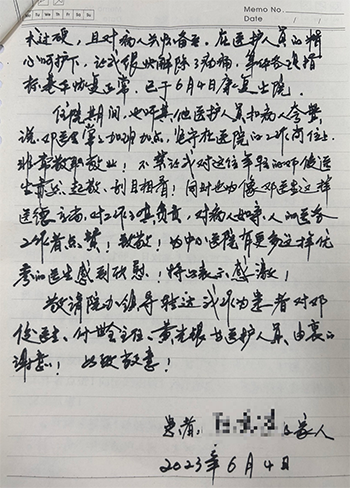 Memo No.
Mo Tu We Th Fr Sa Su
Date / /
术过硬，且对病人关怀备至。在医护人员的精
心呵护下，让我很快解除了病痛，身体各项指
标基本恢复正常。已于6月4日康复出院。
住院期间，也听其他医护人员和病人夸赞
说，邓医生常常加班加点，坚守在医院的工作岗位上，
非常敬职敬业！不禁让我对这位年轻的邓俊医
生肃然起敬、刮目相看！同时也为像邓医生这样
医德高尚、对工作认真负责，对病人如亲人的医务
工作者点赞！致敬！为中心医院有更多这样优
秀的医生感到欣慰！特此表示感激！
敬请院办领导转达我作为患者对邓
俊医生、付 主任、黄 银 护人员 由衷的
谢意！此致敬意！
患者： 及家人
2023年6月4日